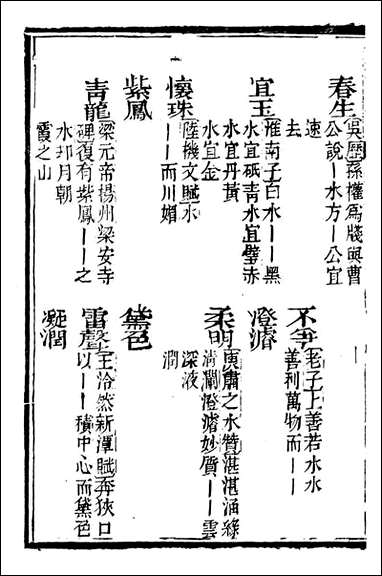 春生
吳歷孫權為牋與曹
公說丨水方丨公宜
速
去
宜玉
淮南子白水丨丨黑
水宜砥青水宜璧赤
水宜丹黃
水宜金
懷珠
陸機文賦水
丨丨而川媚
紫鳳
青龍
梁元帝揚州梁安寺
碑復有紫鳳丨丨之
水却月朝
霞之山
不爭
老子上善若水水
善利萬物而丨丨
澄濬
柔明
庾肅之水贊湛湛涵綠
清瀾澄濬妙質丨丨雲
深液
潤
黛色
雷聲
王泠然新潭賦奔狹口
以丨丨積中心而黛色
凝潤